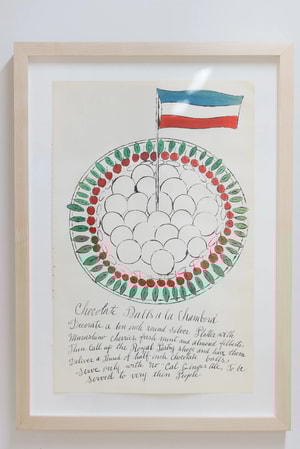 Chocolate Balls a la Chambord
Decorate a ten inch round silver Platte with
Marashino cherries fresh mint and almond filletts.
Then call up the Royal Pastry shope and have them
deliver a Pound of half inch chocolate balls.
Serve only with no Cal Ginger Ale. To be
served to very thin People